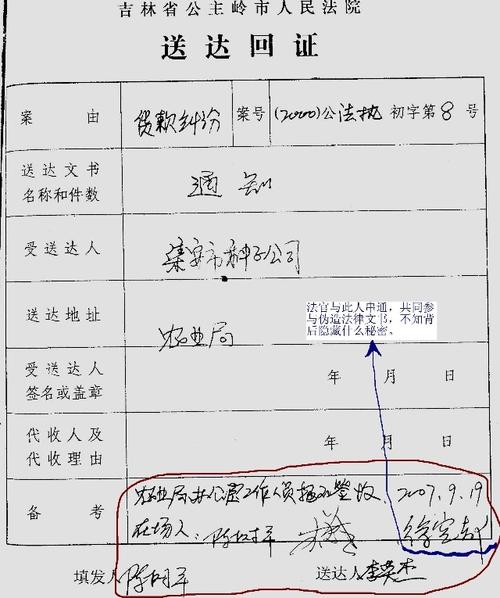 吉林省公主岭市人民法院
送达回证
案由 货款纠纷 案号 (2000)公法执初字第8号
送达文书名称和件数 通知
受送达人 集安市种子公司
送达地址 农业局
法官与此人串通,共同参
与伪造法律文书,不知背
后隐藏什么秘密。
受送达人签名或盖章 年 月 日
代收人及代收理由 年 月 日
备考 农业局办公室工作人员拒不签收. 2007.9.19
在场人:
填发人 送达人